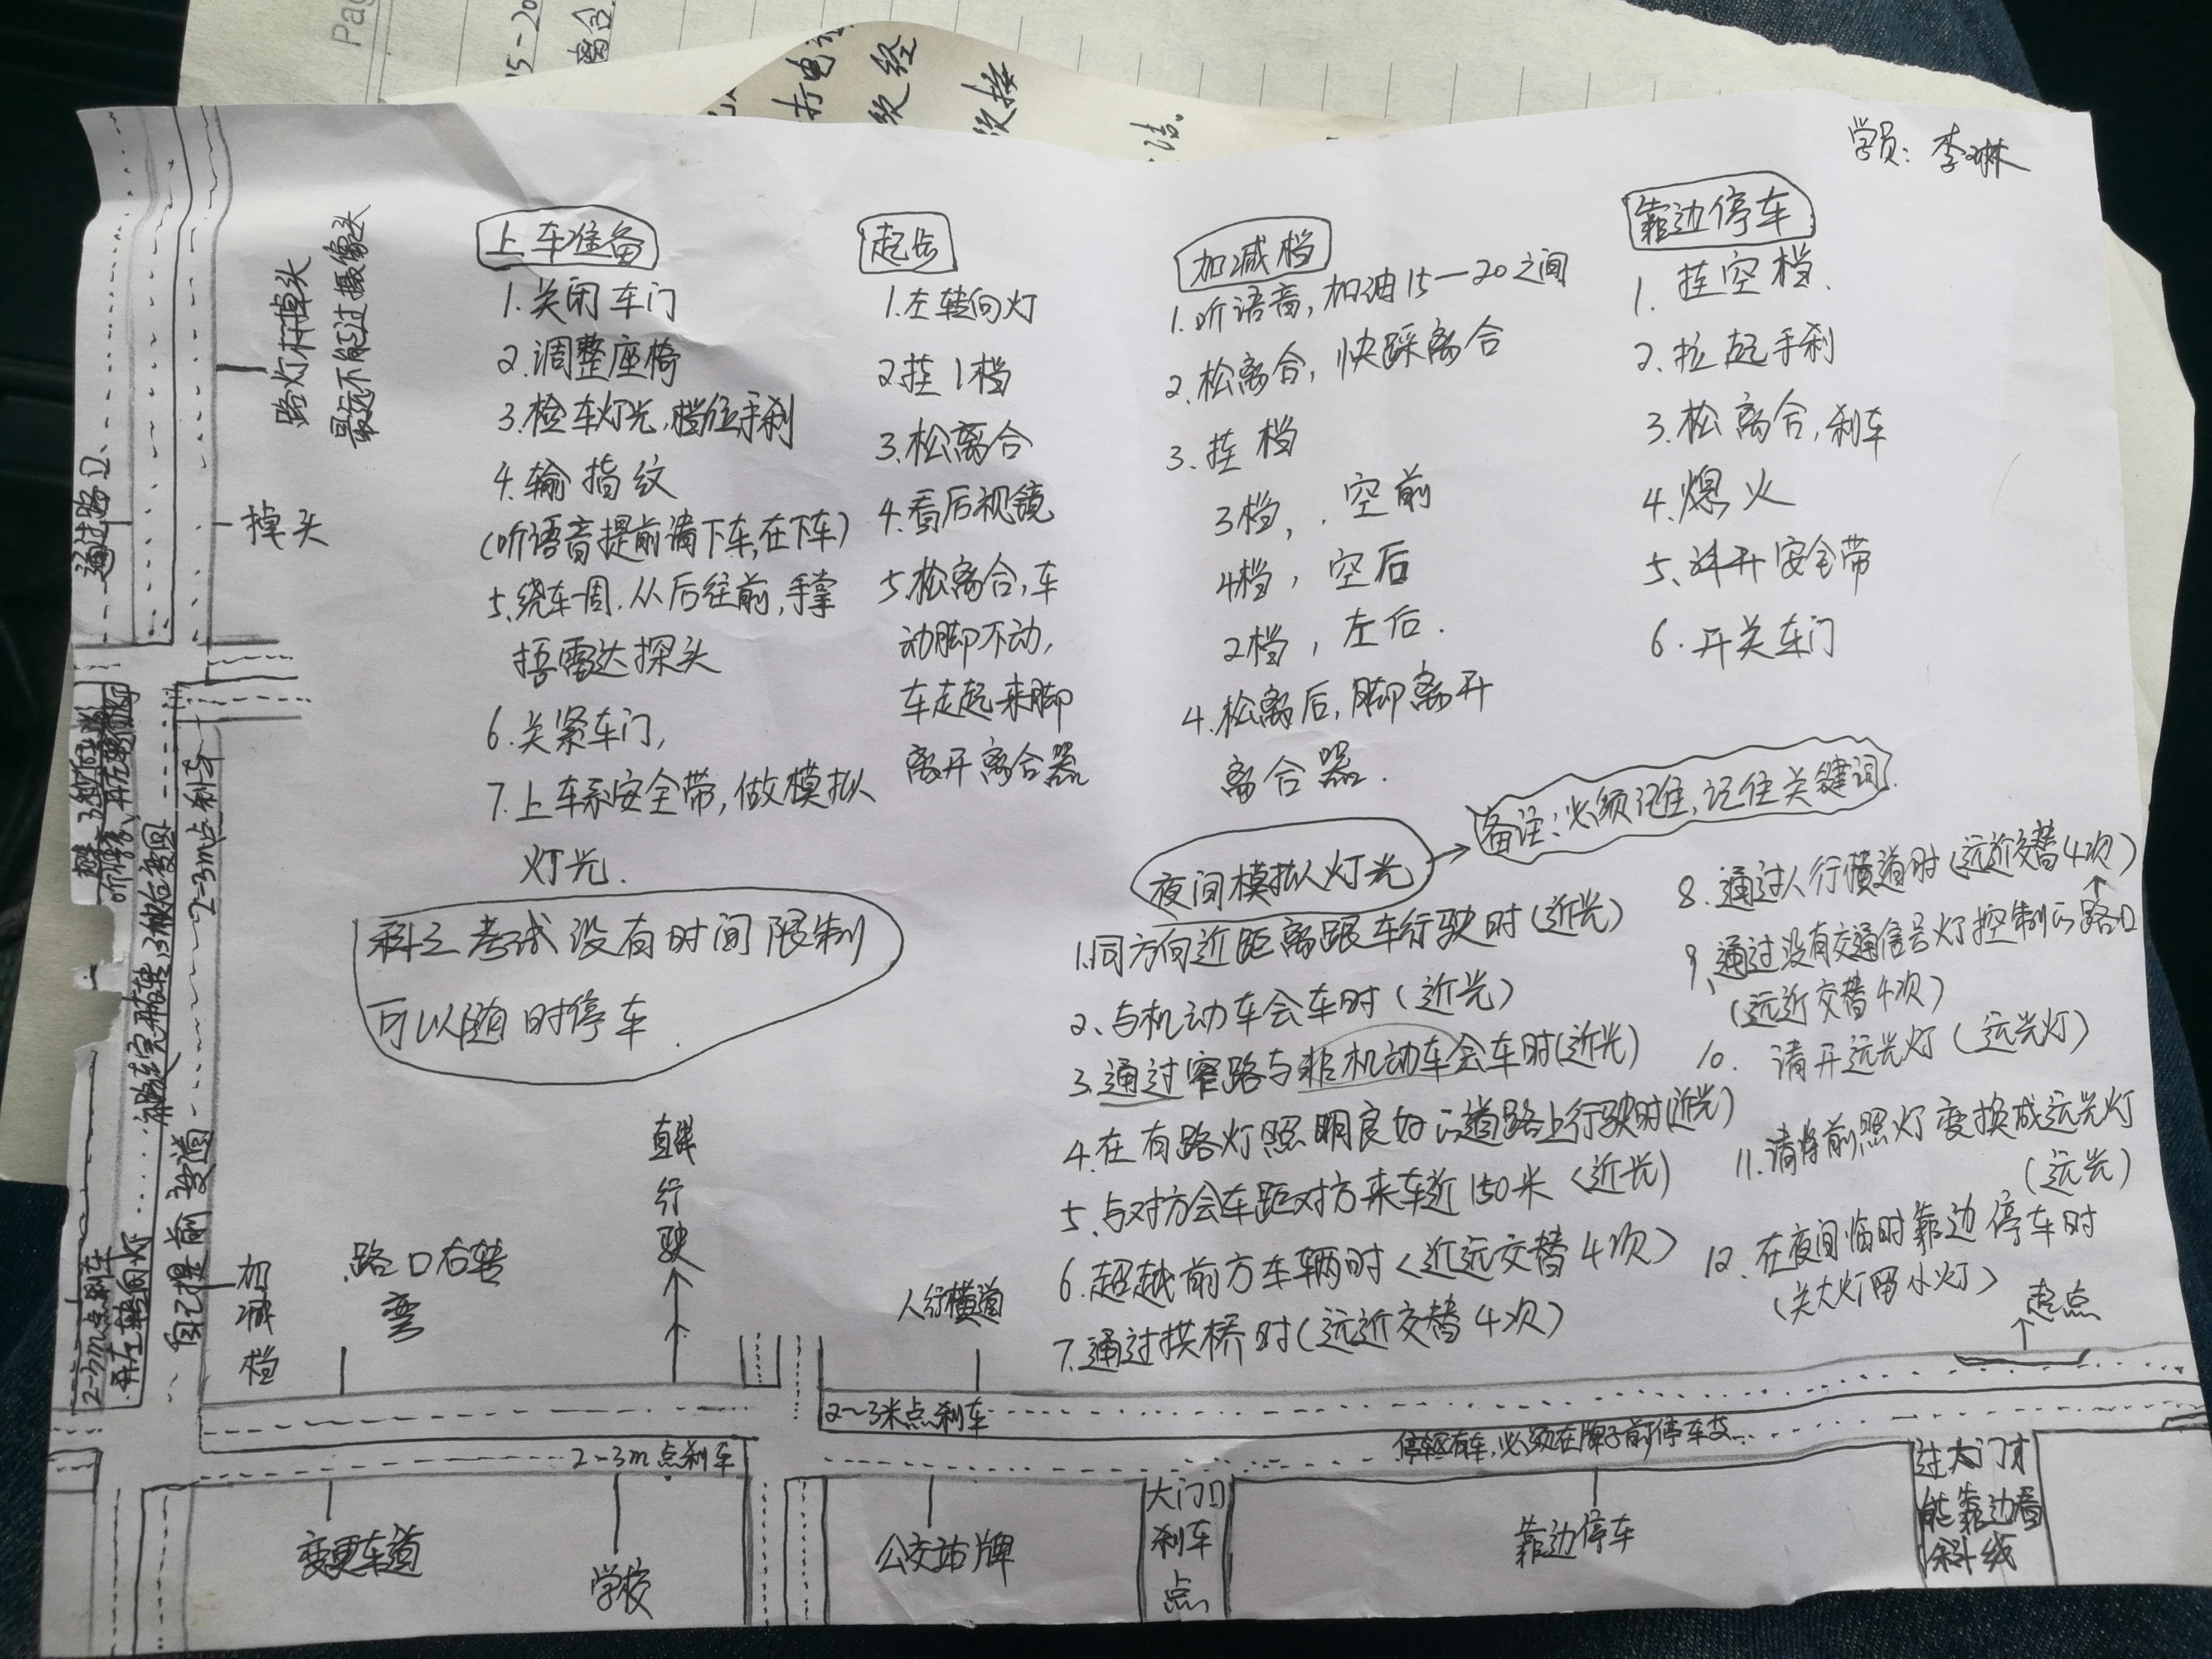 学员：李琳
上车准备
1.关闭车门
2.调整座椅
3.检车灯光,档位,手刹
4.输指纹
(听语音提前请下车,在下车)
5.绕车一周.从后往前,手掌
捂雷达探头
6.关紧车门,
7.上车系安全带,做模拟
灯光.
科三考试没有时间限制
可以随时停车.
起步
1.左转向灯
2.挂1档
3.松离合
4.看后视镜
5.松离合,车
动脚不动,
车走起来脚
离开离合器
加减档
1.听语音,加油15—20之间
2.松离合,快踩离合
3.挂档
3档,.空前
4档,空后
2档,左后.
4.松离后,脚离开
离合器.
靠边停车
1.挂空档.
2.拉起手刹
3.松离合,刹车
4.熄火
5.解开安全带
6.开关车门
夜间模拟灯光
备注:必须记住,记住关键词.
1.同方向近距离跟车行驶时(近光)
2、与机动车会车时(近光)
3.通过窄路与非机动车会车时(近光)
4.在有路灯照明良好的道路上行驶时(近光)
5.与对方会车距对方来车近150米(近光)
6.超越前方车辆时(近远交替4次)
7.通过拱桥时(远近交替4次)
8.通过人行横道时(远近交替4次)
9、通过没有交通信号灯控制的路口
(远近交替4次)
10.请开远光灯(远光灯)
11.请将前照灯变换成远光灯
(远光)
12.在夜间临时靠边停车时
(关大灯留小灯)
起点
路灯杆掉头
最远不能过摄像头
掉头
通过路口
2-3m点刹车
自己提前变道
2-3m点刹车
再左转向灯
加减档
路口右转
弯
直线
行
驶
人行横道
2~3米点刹车
2-3m点刹车
变更车道
学校
公交站牌
大门口
刹车
点
靠边停车
过大门才
能靠边
斜线
打电
次经
次接